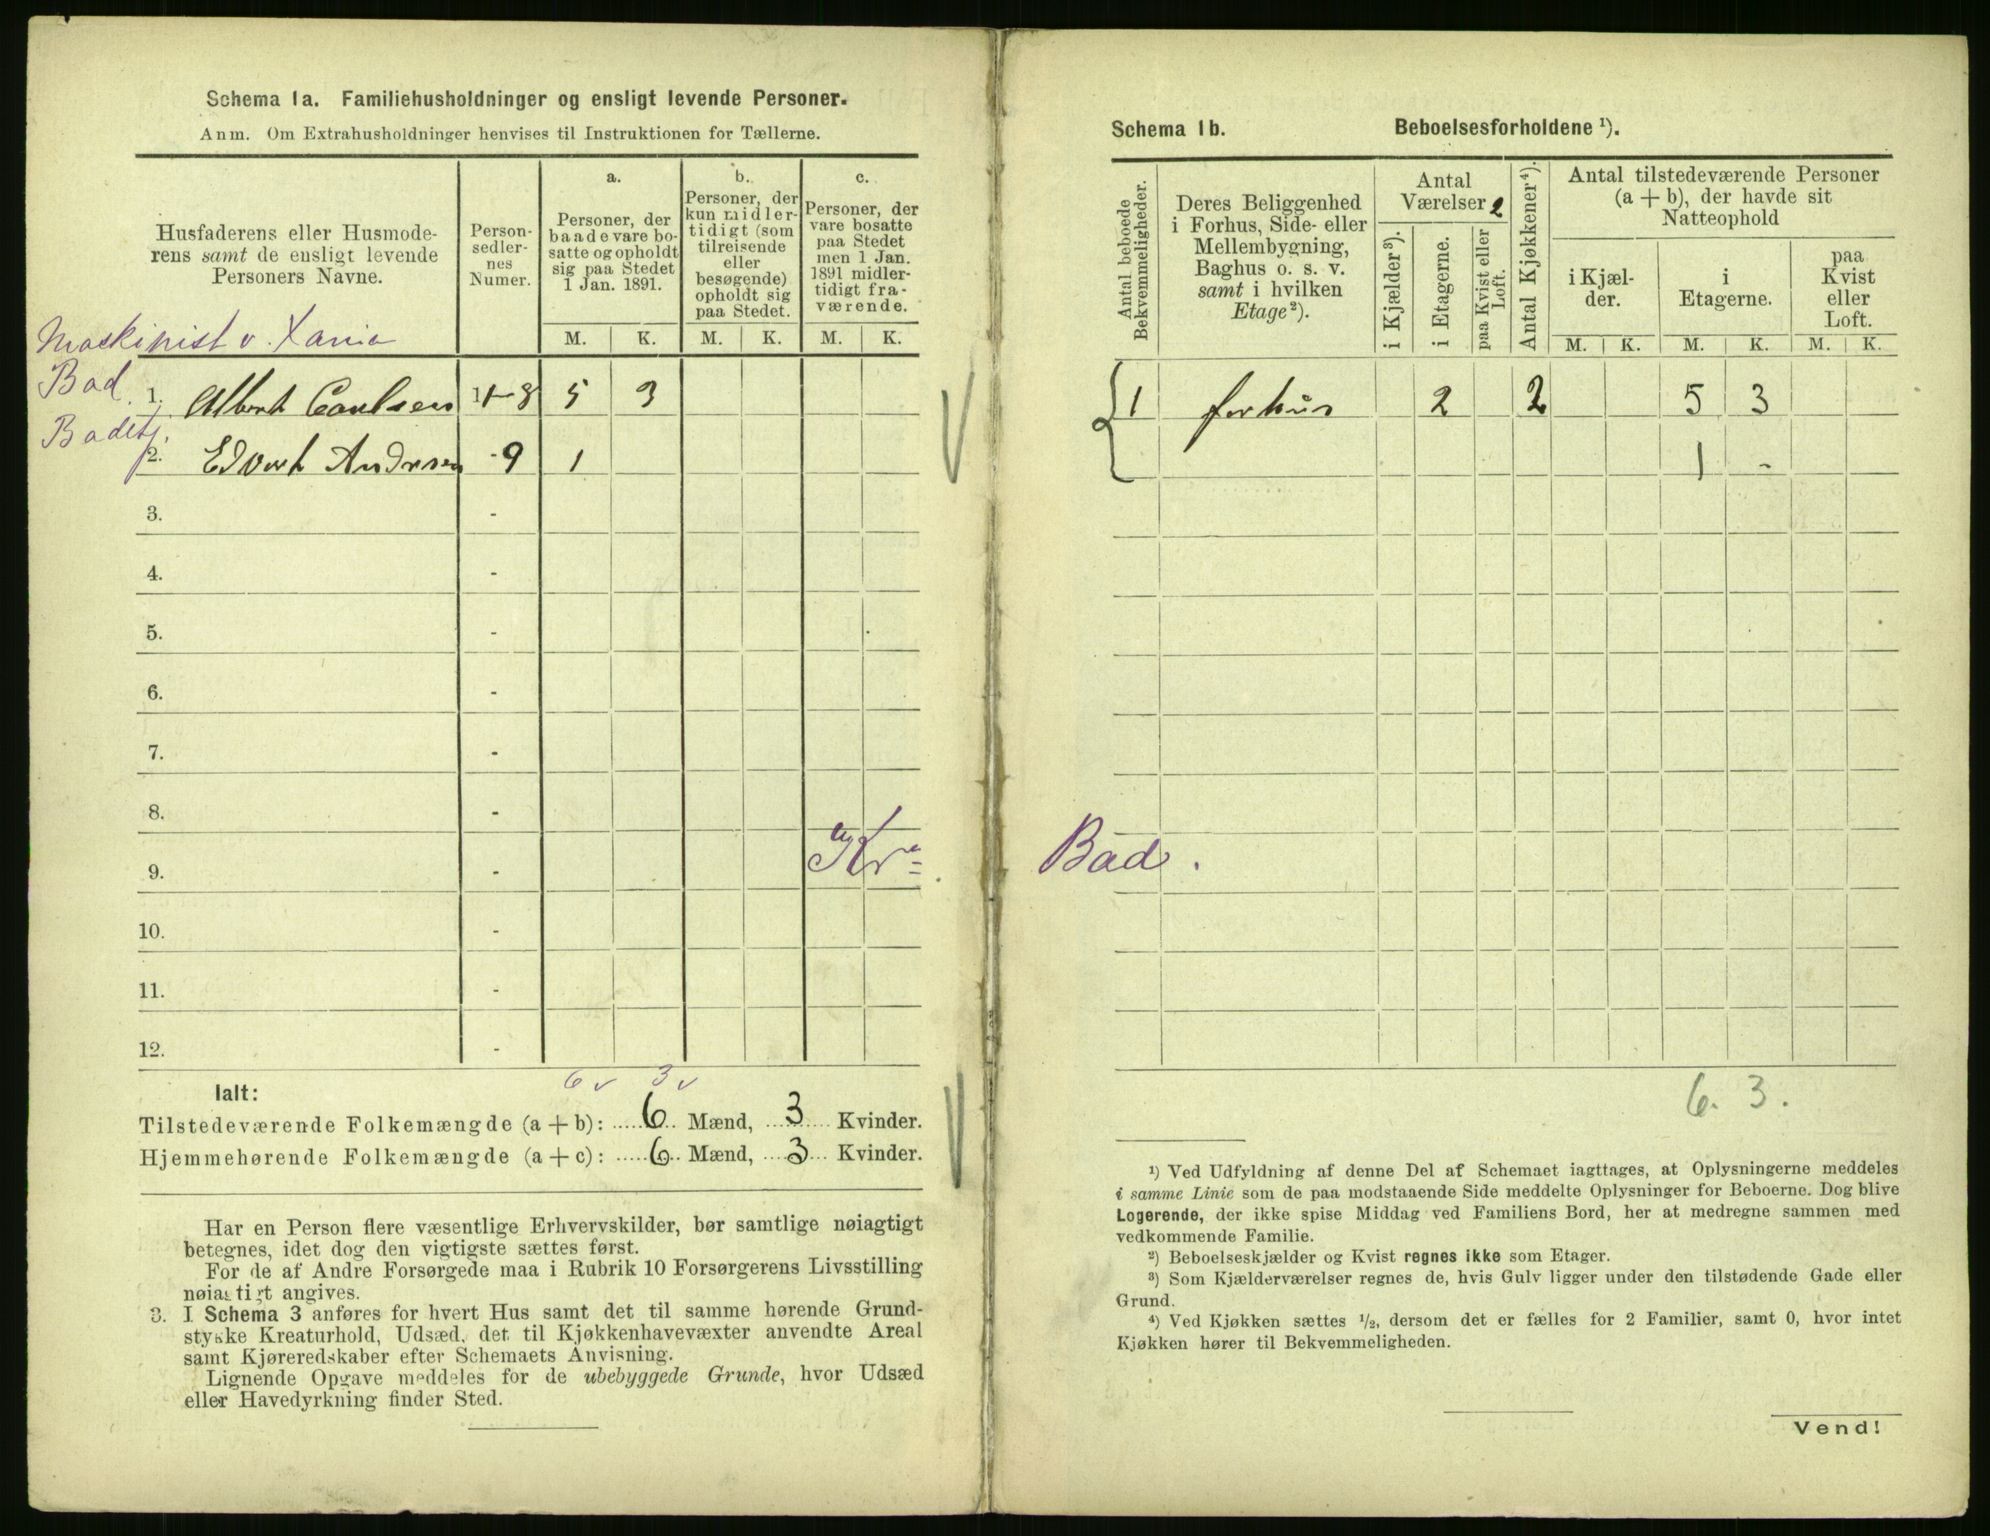 Schema 1a. Familiehusholdninger og ensligt levende Personer.
Anm. Om Extrahusholdninger henvises til Instruktionen for Tællerne.
Husfaderens eller Husmode-
rens samt de ensligt levende
Personers Navne.
Person-
sedler-
nes
Numer.
a.
Personer, der
baade vare bo-
satte og opholdt
sig paa Stedet
1 Jan. 1891.
b.
Personer, der
kun midler-
tidigt (som
tilreisende
eller
besøgende)
opholdt sig
paa Stedet.
c.
Personer, der
vare bosatte
paa Stedet
men 1 Jan.
1891 midler-
tidigt fra-
værende.
M. K. M. K. M. K.
Maskinist v. Xania
Bad.
1. Albert Carlsen 1-8 5 3
Badetj.
2. Edvert Andresen - 9 1
3. -
4. -
5. -
6. -
7. -
8. -
9. -
10. -
11. -
12. -
6 v 3 v
Ialt:
Tilstedeværende Folkemængde (a + b): 6 Mænd, 3 Kvinder.
Hjemmehørende Folkemængde (a + c): 6 Mænd, 3 Kvinder.
Har en Person flere væsentlige Erhvervskilder, bør samtlige nøiagtigt
betegnes, idet dog den vigtigste sættes først.
For de af Andre Forsørgede maa i Rubrik 10 Forsørgerens Livsstilling
nøiagtigt angives.
3. I Schema 3 anføres for hvert Hus samt det til samme hørende Grund-
stykke Kreaturhold, Udsæd, det til Kjøkkenhavevæxter anvendte Areal
samt Kjøreredskaber efter Schemaets Anvisning.
Lignende Opgave meddeles for de ubebyggede Grunde, hvor Udsæd
eller Havedyrkning finder Sted.
Schema 1b. Beboelsesforholdene ¹).
Antal beboede
Bekvemmeligheder.
Deres Beliggenhed
i Forhus, Side- eller
Mellembygning,
Baghus o. s. v.
samt i hvilken
Etage²).
Antal
Værelser 2
i Kjælder³).
i Etagerne.
paa Kvist eller
Loft.
Antal Kjøkkener⁴).
Antal tilstedeværende Personer
(a + b), der havde sit
Natteophold
i Kjæl-
der.
i
Etagerne.
paa
Kvist
eller
Loft.
M. K. M. K. M. K.
1 forhus 2 2 5 3
1 -
Kra Bad.
6. 3.
¹) Ved Udfyldning af denne Del af Schemaet iagttages, at Oplysningerne meddeles
i samme Linie som de paa modstaaende Side meddelte Oplysninger for Beboerne. Dog blive
Logerende, der ikke spise Middag ved Familiens Bord, her at medregne sammen med
vedkommende Familie.
²) Beboelseskjælder og Kvist regnes ikke som Etager.
³) Som Kjælderværelser regnes de, hvis Gulv ligger under den tilstødende Gade eller
Grund.
⁴) Ved Kjøkken sættes ½, dersom det er fælles for 2 Familier, samt 0, hvor intet
Kjøkken hører til Bekvemmeligheden.
Vend!